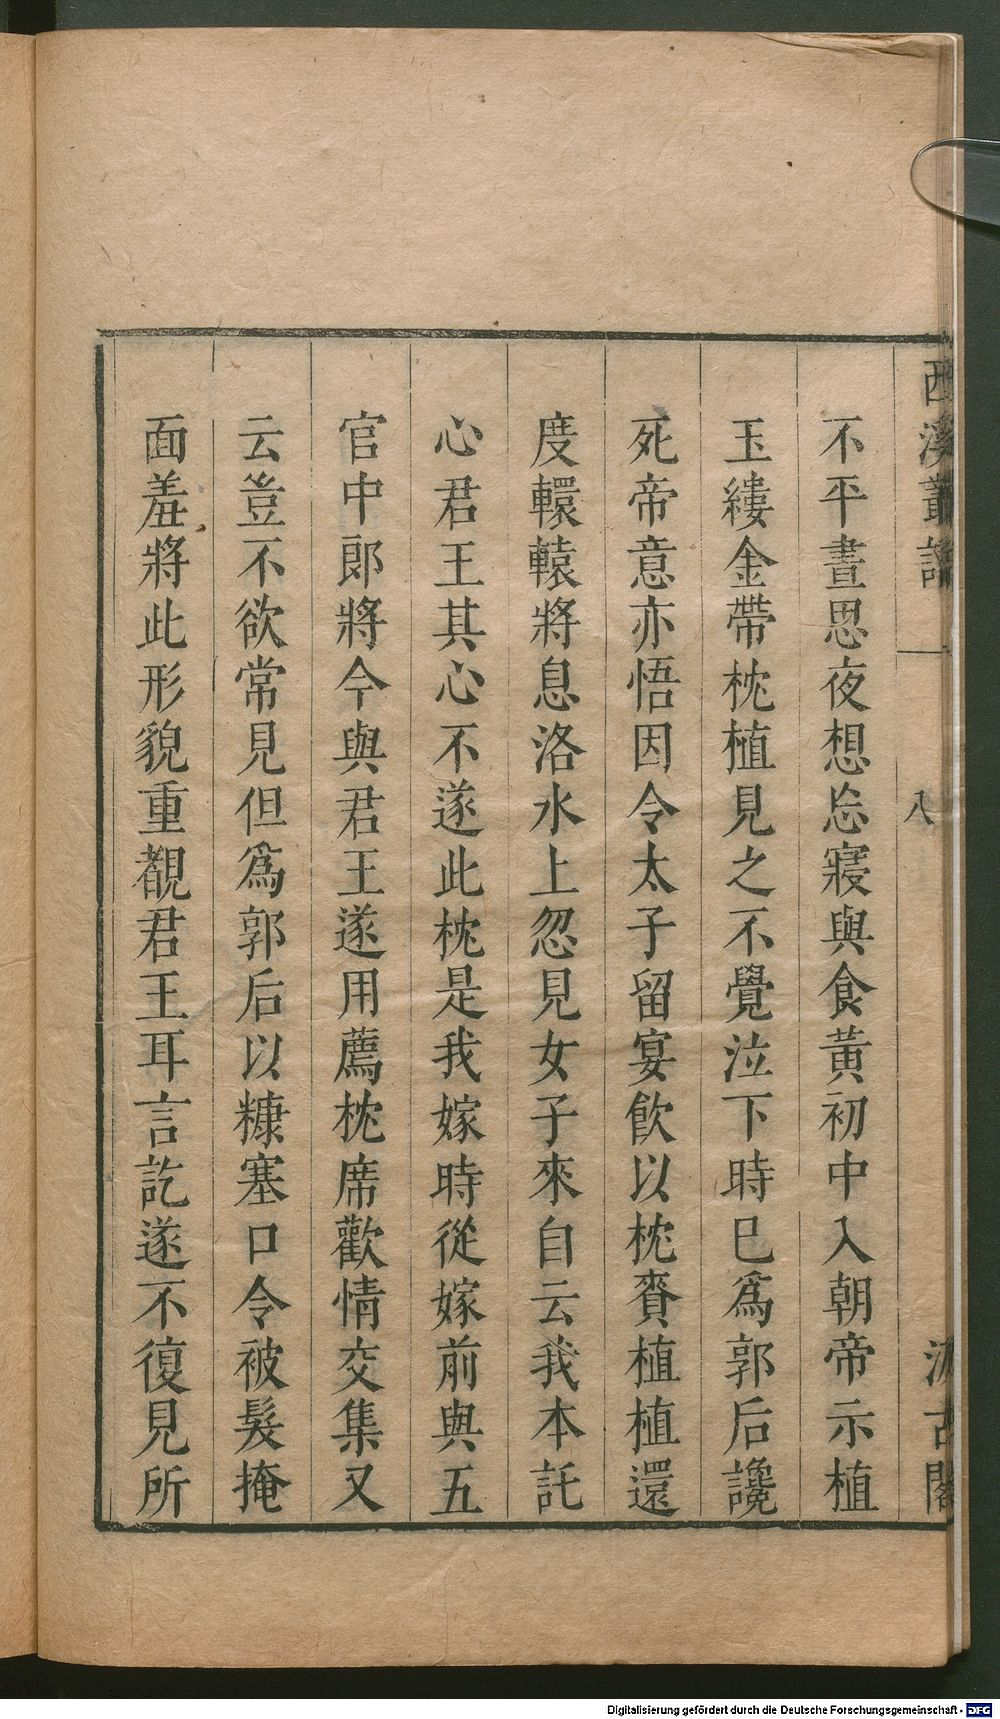 西溪叢語
八
汲古閣
不平晝思夜想忘寢與食黃初中入朝帝示植
玉縷金帶枕植見之不覺泣下時巳爲郭后讒
死帝意亦悟因令太子留宴飮以枕賚植植還
度轘轅將息洛水上忽見女子來自云我本託
心君王其心不遂此枕是我嫁時從嫁前與五
官中郎將今與君王遂用薦枕席歡情交集又
云豈不欲常見但爲郭后以糠塞口令被髮掩
面羞將此形貌重覩君王耳言訖遂不復見所
Digitalisierung gefördert durch die Deutsche Forschungsgemeinschaft - DFG